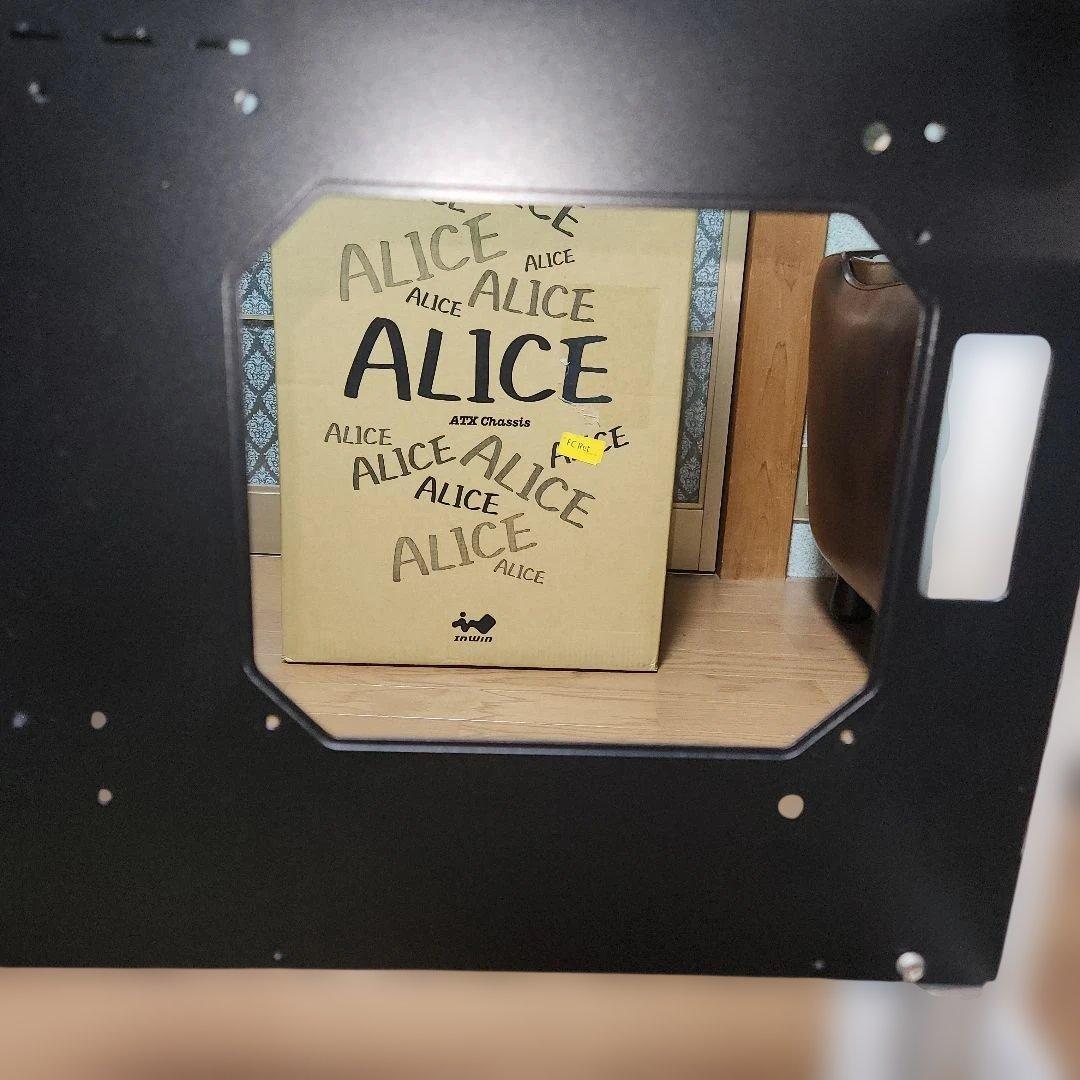 ALICE
ALICE
ALICE
ALICE
ALICE
ATX Chassis
ALICE
ALICE
ALICE
ALICE
ALICE
ALICE
InWin